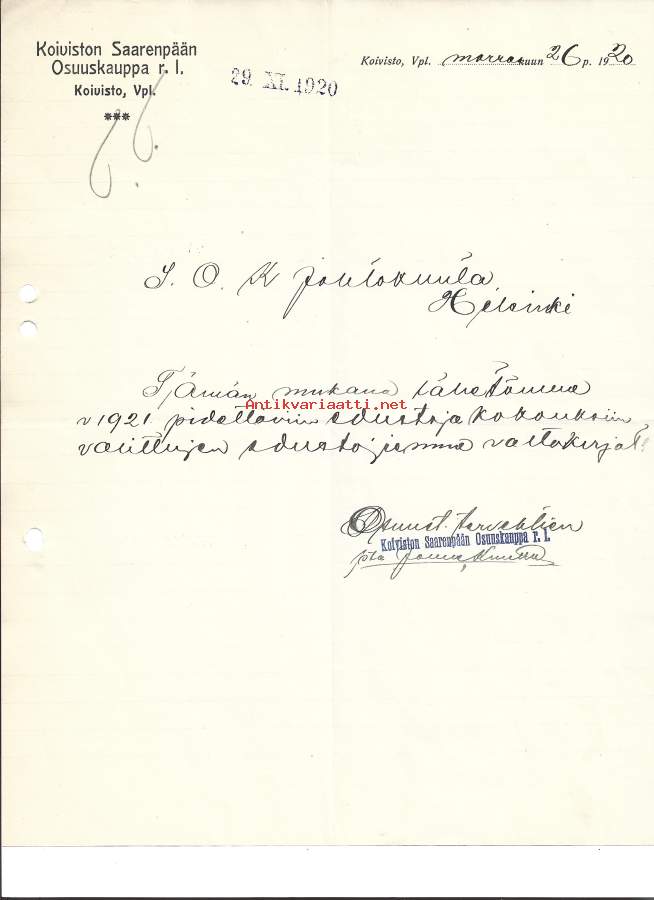 Koiviston Saarenpään
Osuuskauppa r. l.
Koivisto, Vpl.
29. XI. 1920
Koivisto, Vpl. marraskuun 26 p. 1920
S. O. K Johtokunta
Helsinki
Tämän mukana lähetämme
v 1921 pidettäviin edustaja kokouksiin
valittujen edustajiemme valtakirjat
Antikvariaatti.net
Osuust. tervehtien
Koiviston Saarenpään Osuuskauppa r. l.